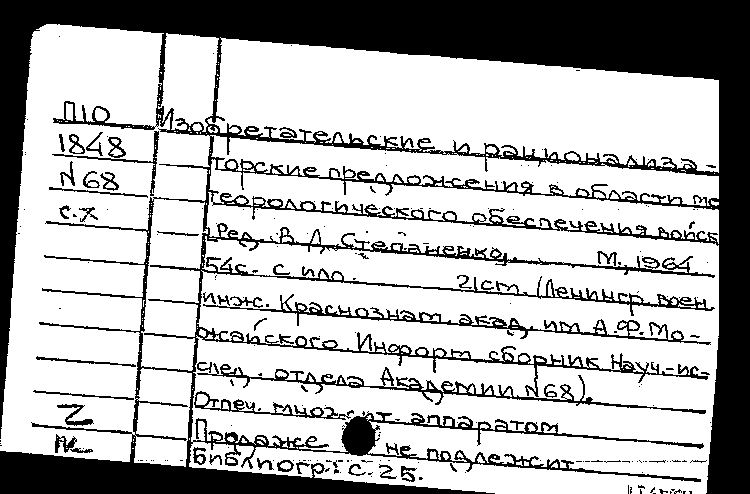 П10 Изобретательские и рационализа-
1848 торские предложения в области ме
N68 теорологического обеспечения войск
с.х [Ред. В.Д. Степаненко. М., 1964
54с. с илл. 21ст. (Ленингр. воен.
инж. Краснознам. акад. им А.Ф.Мо-
жайского. Информ. сборник Науч.-ис-
след. отдела Академии N68).
Отпеч. множит. аппаратом
Продаже не подлежит.
Библиогр.: с. 25.